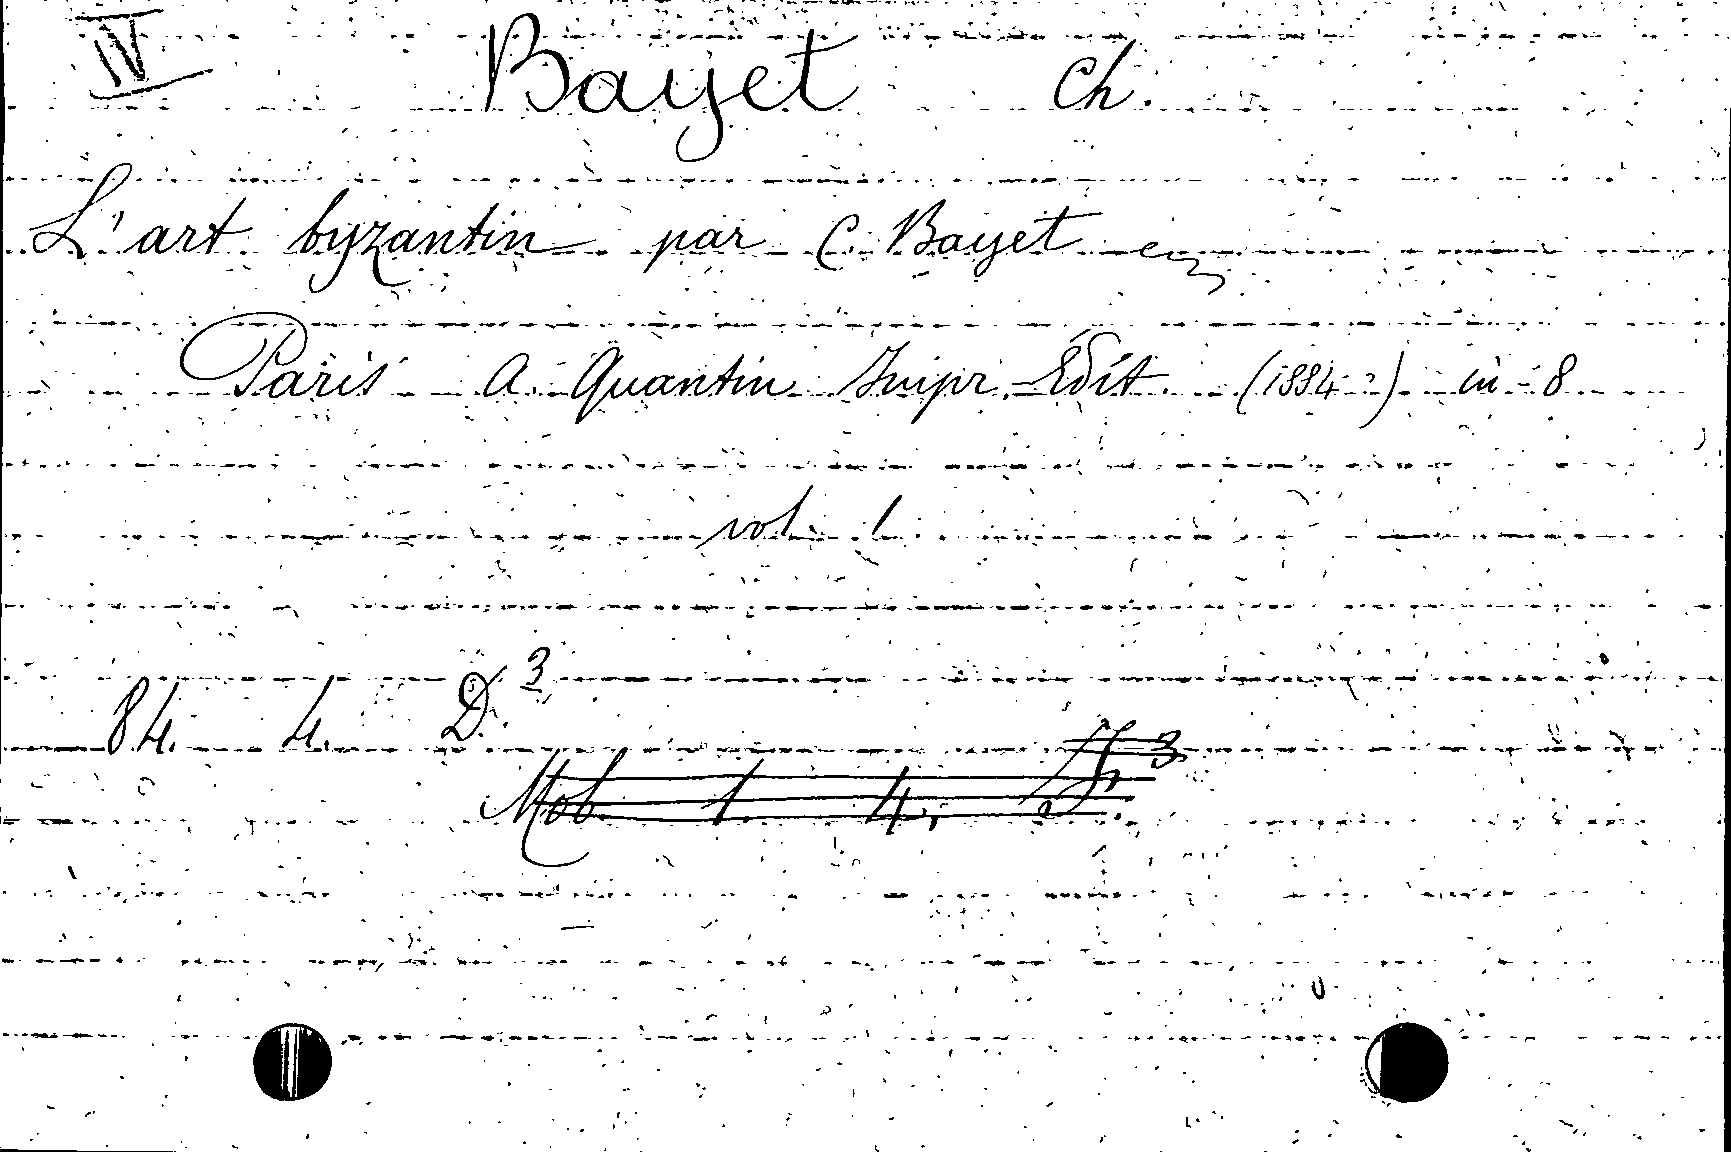 IV Bayet Ch.
L'art byzantin par C. Bayet
Paris A. Quantin Impr.-Édit. (1884?) in-8
vol. 1
84. 4. D.3
Mob. 1. 4.